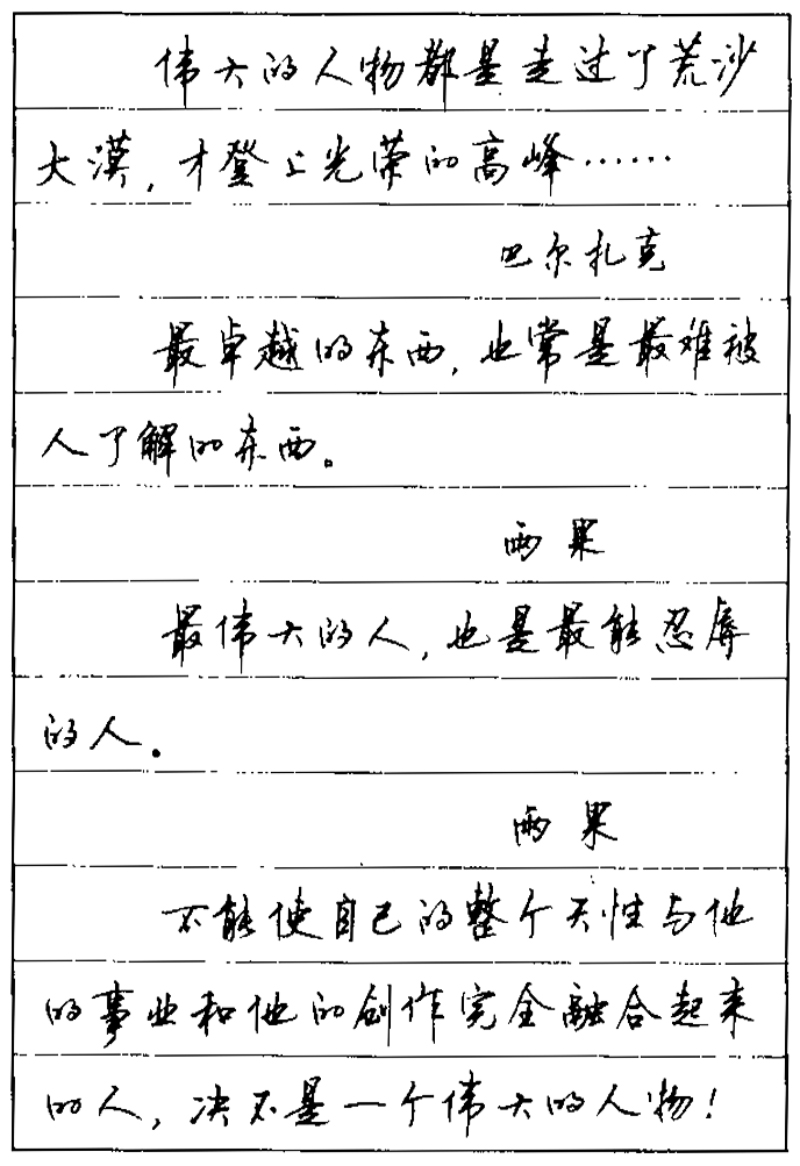 伟大的人物都是走过了荒沙
大漠，才登上光荣的高峰……
巴尔扎克
最卓越的东西，也常是最难被
人了解的东西。
雨果
最伟大的人，也是最能忍辱
的人.
雨果
不能使自己的整个天性与他
的事业和他的创作完全融合起来
的人，决不是一个伟大的人物！